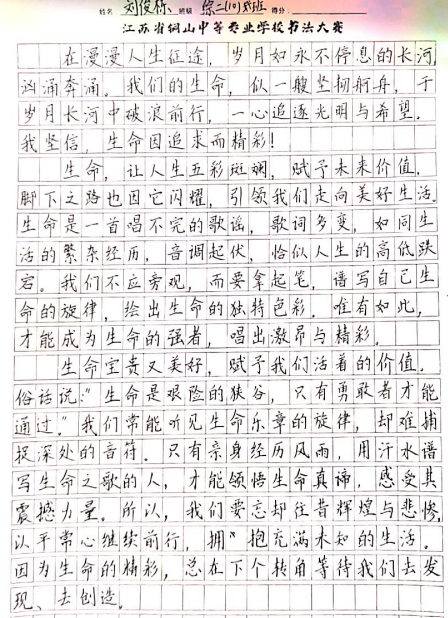 姓名 刘俊标 班级 综二(10)班 得分
江苏省铜山中等专业学校书法大赛
在漫漫人生征途，岁月如永不停息的长河，
汹涌奔涌。我们的生命，似一艘坚韧舸舟，于
岁月长河中破浪前行，一心追逐光明与希望。
我坚信，生命因追求而精彩！
生命，让人生五彩斑斓，赋予未来价值，
脚下之路也因它闪耀，引领我们走向美好生活。
生命是一首唱不完的歌谣，歌词多变，如同生
活的繁杂经历，音调起伏，恰似人生的高低跌
宕。我们不应旁观，而要拿起笔，谱写自己生
命的旋律，绘出生命的独特色彩。唯有如此，
才能成为生命的强者，唱出激昂与精彩。
生命宝贵又美好，赋予我们活着的价值。
俗话说："生命是艰险的狭谷，只有勇敢者才能
通过。"我们常能听见生命乐章的旋律，却难捕
捉深处的音符。只有亲身经历风雨，用汗水谱
写生命之歌的人，才能领悟生命真谛，感受其
震撼力量。所以，我们要忘却往昔辉煌与悲惨，
以平常心继续前行，拥"抱充满未知的生活。
因为生命的精彩，总在下个转角等待我们去发
现、去创造。